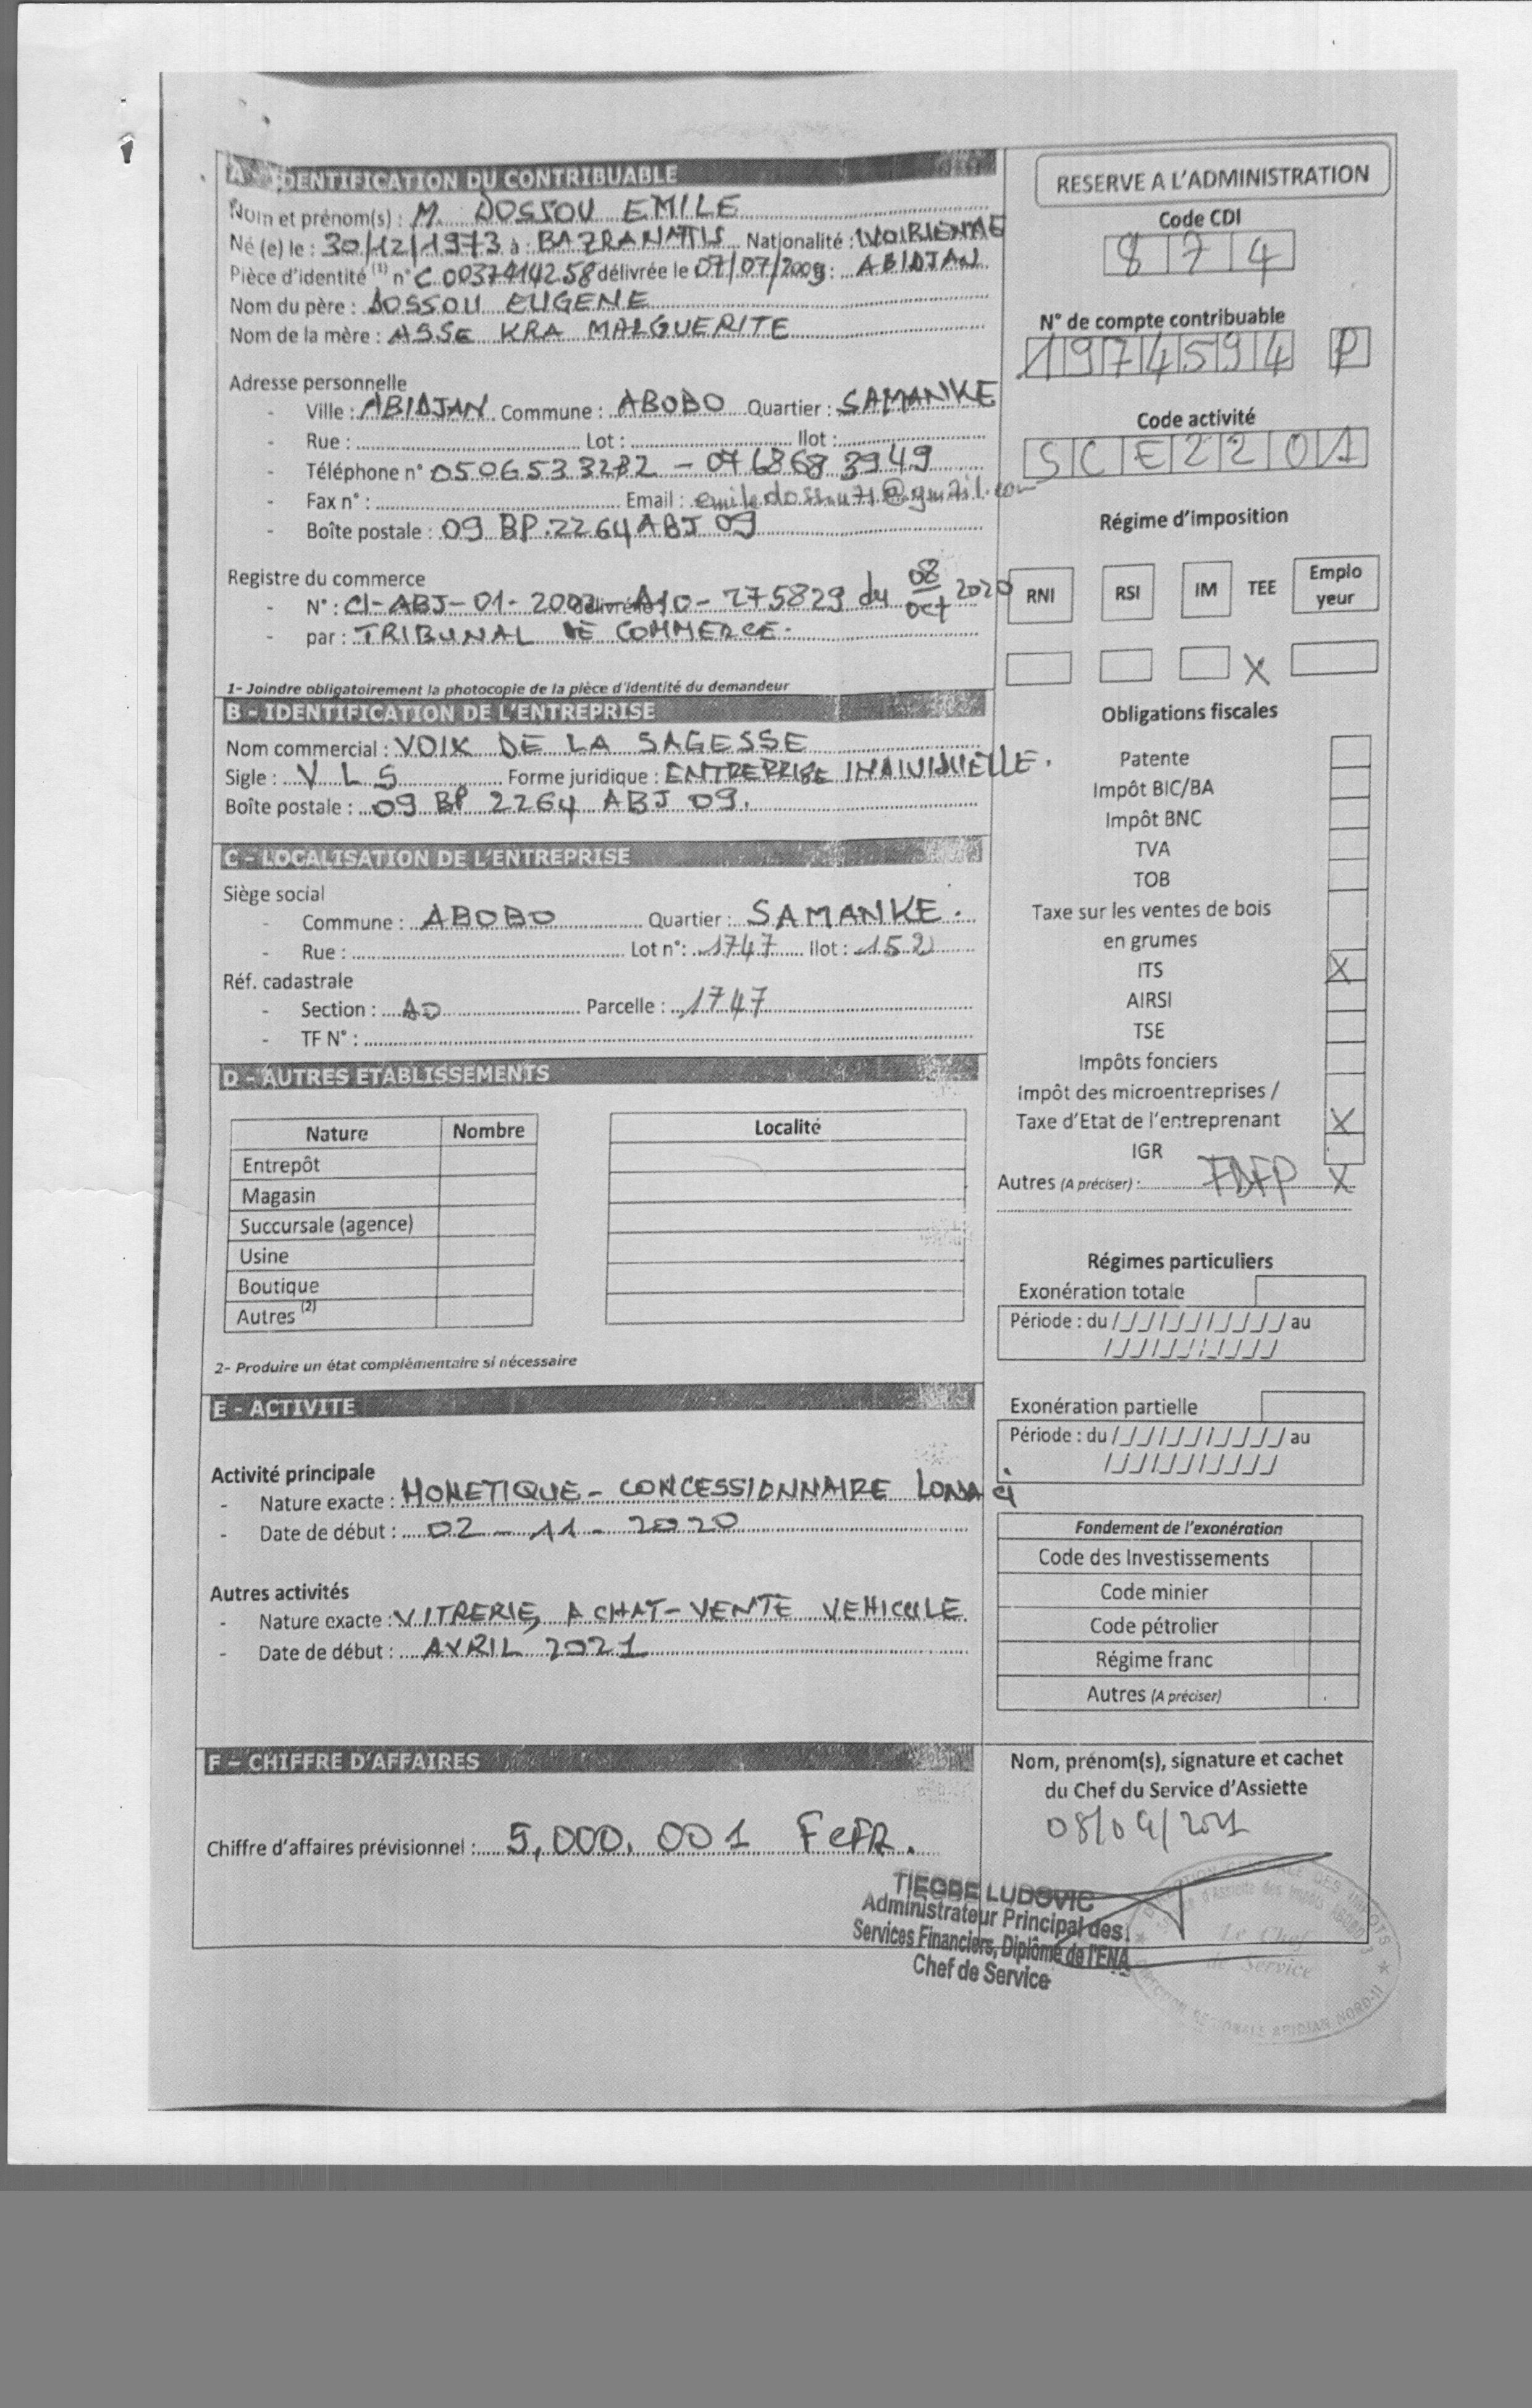 A - IDENTIFICATION DU CONTRIBUABLE
Nom et prénom(s) : M. DOSSOU EMILE
Né (e) le : 30/12/1973 à : Nationalité : IVOIRIENNE
Pièce d'identité (1) n° C 0037414258 délivrée le 07/07/2009 : ABIDJAN
Nom du père : DOSSOU EUGENE
Nom de la mère : ASSE KRA MALGUERITE
Adresse personnelle
- Ville : ABIDJAN Commune : ABOBO Quartier : SAMANKE
- Rue : Lot : Ilot :
- Téléphone n° 0506533282 - 0768683949
- Fax n° : Email :
- Boîte postale : 09 BP 2264 ABJ 09
Registre du commerce
- N° : CI-ABJ-01-2002 A10 - 275829 du 08 oct 2020
- par : TRIBUNAL DE COMMERCE.
1- Joindre obligatoirement la photocopie de la pièce d'identité du demandeur
B - IDENTIFICATION DE L'ENTREPRISE
Nom commercial : VOIX DE LA SAGESSE
Sigle : V L S Forme juridique : ENTREPRISE INDIVIDUELLE.
Boîte postale : 09 BP 2264 ABJ 09.
C - LOCALISATION DE L'ENTREPRISE
Siège social
- Commune : ABOBO Quartier : SAMANKE.
- Rue : Lot n° : 1747 Ilot : 152
Réf. cadastrale
- Section : AD Parcelle : 1747
- TF N° :
D - AUTRES ETABLISSEMENTS
Nature Nombre Localité
Entrepôt
Magasin
Succursale (agence)
Usine
Boutique
Autres (2)
2- Produire un état complémentaire si nécessaire
E - ACTIVITE
Activité principale
- Nature exacte : MONETIQUE - CONCESSIONNAIRE LONACI
- Date de début : 02 - 11 - 2020
Autres activités
- Nature exacte : VITRERIE, ACHAT-VENTE VEHICULE
- Date de début : AVRIL 2021
F – CHIFFRE D'AFFAIRES
Chiffre d'affaires prévisionnel : 5,000,001 FCFA.
RESERVE A L'ADMINISTRATION
Code CDI
8 7 4
N° de compte contribuable
1974594 P
Code activité
SCE2201
Régime d'imposition
RNI RSI IM TEE Emplo
yeur
X
Obligations fiscales
Patente
Impôt BIC/BA
Impôt BNC
TVA
TOB
Taxe sur les ventes de bois
en grumes
ITS X
AIRSI
TSE
Impôts fonciers
Impôt des microentreprises /
Taxe d'Etat de l'entreprenant X
IGR
Autres (A préciser) : FDFP X
Régimes particuliers
Exonération totale
Période : du /_/_/ /_/_/ /_/_/_/_/ au
/_/_/ /_/_/ /_/_/_/_/
Exonération partielle
Période : du /_/_/ /_/_/ /_/_/_/_/ au
/_/_/ /_/_/ /_/_/_/_/
Fondement de l'exonération
Code des Investissements
Code minier
Code pétrolier
Régime franc
Autres (A préciser)
Nom, prénom(s), signature et cachet
du Chef du Service d'Assiette
08/04/2021
TIEGBE LUDOVIC
Administrateur Principal des
Services Financiers, Diplômé de l'ENA
Chef de Service
DIRECTION GENERALE DES IMPOTS
Service d'Assiette des Impôts ABOBO 3
Le Chef
de Service
DIRECTION REGIONALE ABIDJAN NORD-II